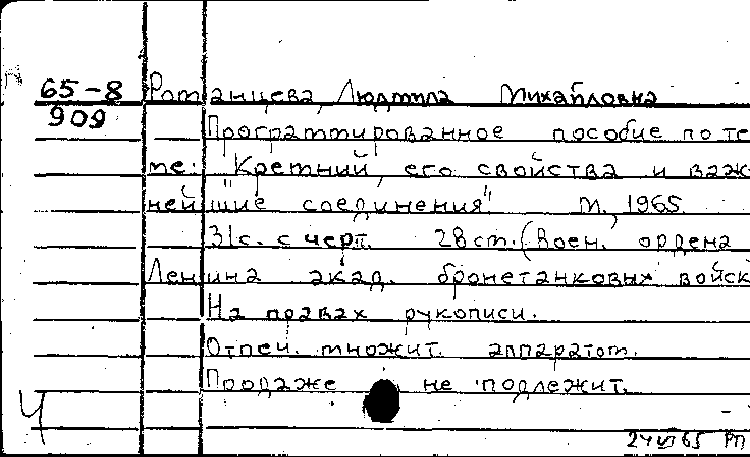 65-8 Романцева, Людмила Михайловна
909 Программированное пособие по те
ме: "Кремний, его свойства и важ
нейшие соединения" М., 1965
31с. с черт. 28 см. (Воен. ордена
Ленина акад. бронетанковых войск
На правах рукописи.
Отпеч. множит. аппаратом.
Продаже не подлежит.
Ч
24 VI 65 РП